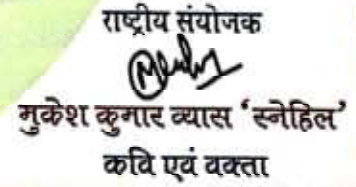 राष्ट्रीय संयोजक
मुकेश कुमार व्यास ‘स्नेहिल’
कवि एवं वक्ता